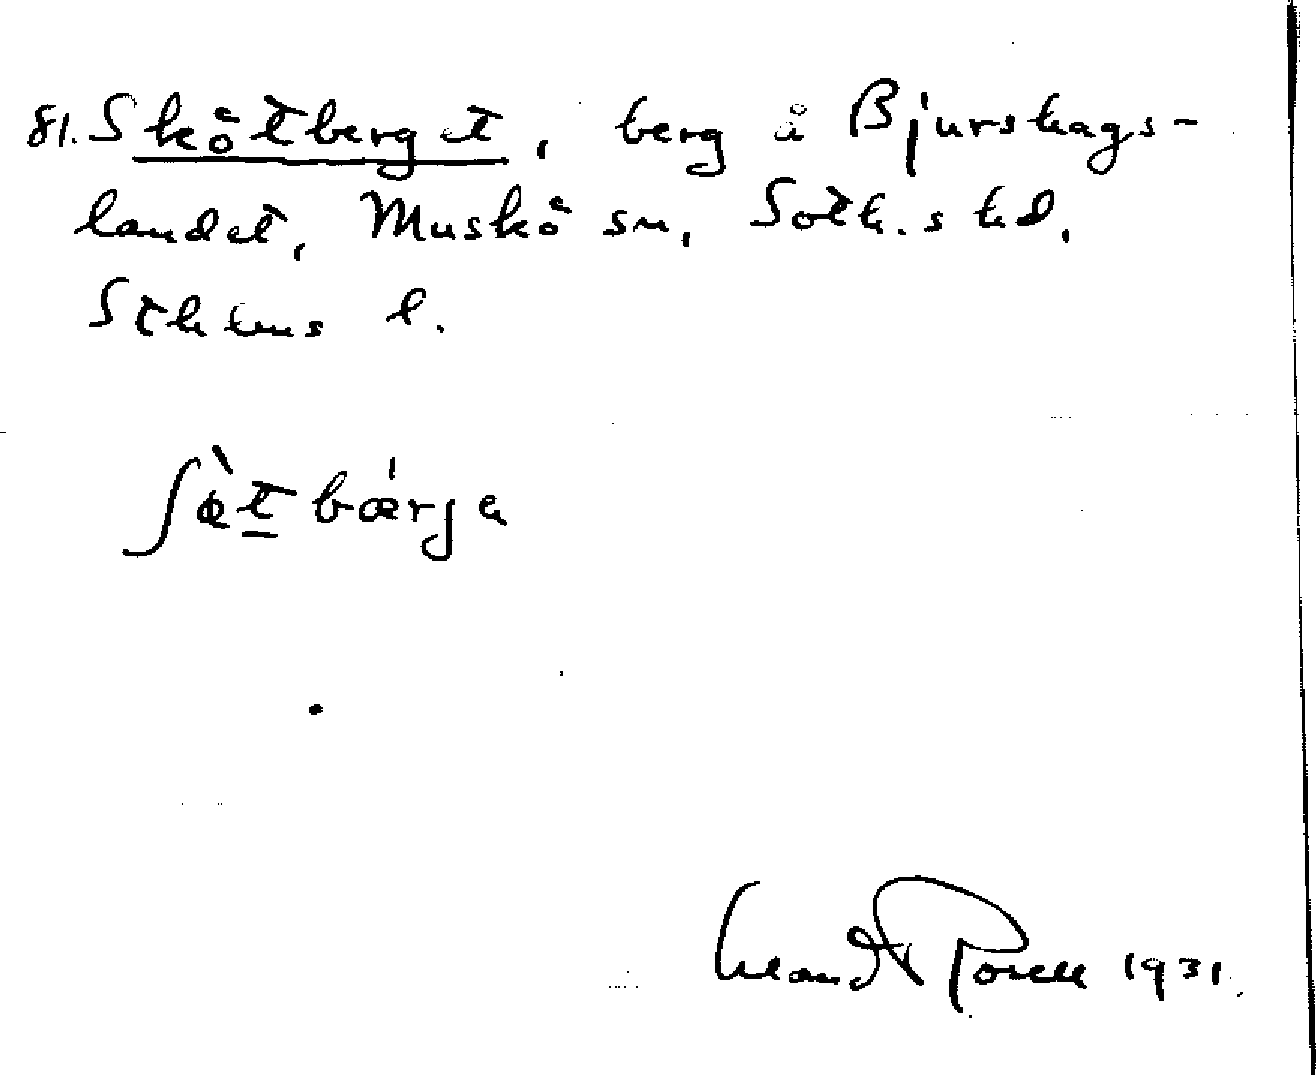 81. Skötberget, berg å Bjurshags-
landet, Muskö sn, Soth.s hd,
Sthlms l.
ʃø̀t bærja
Rosell 1931.